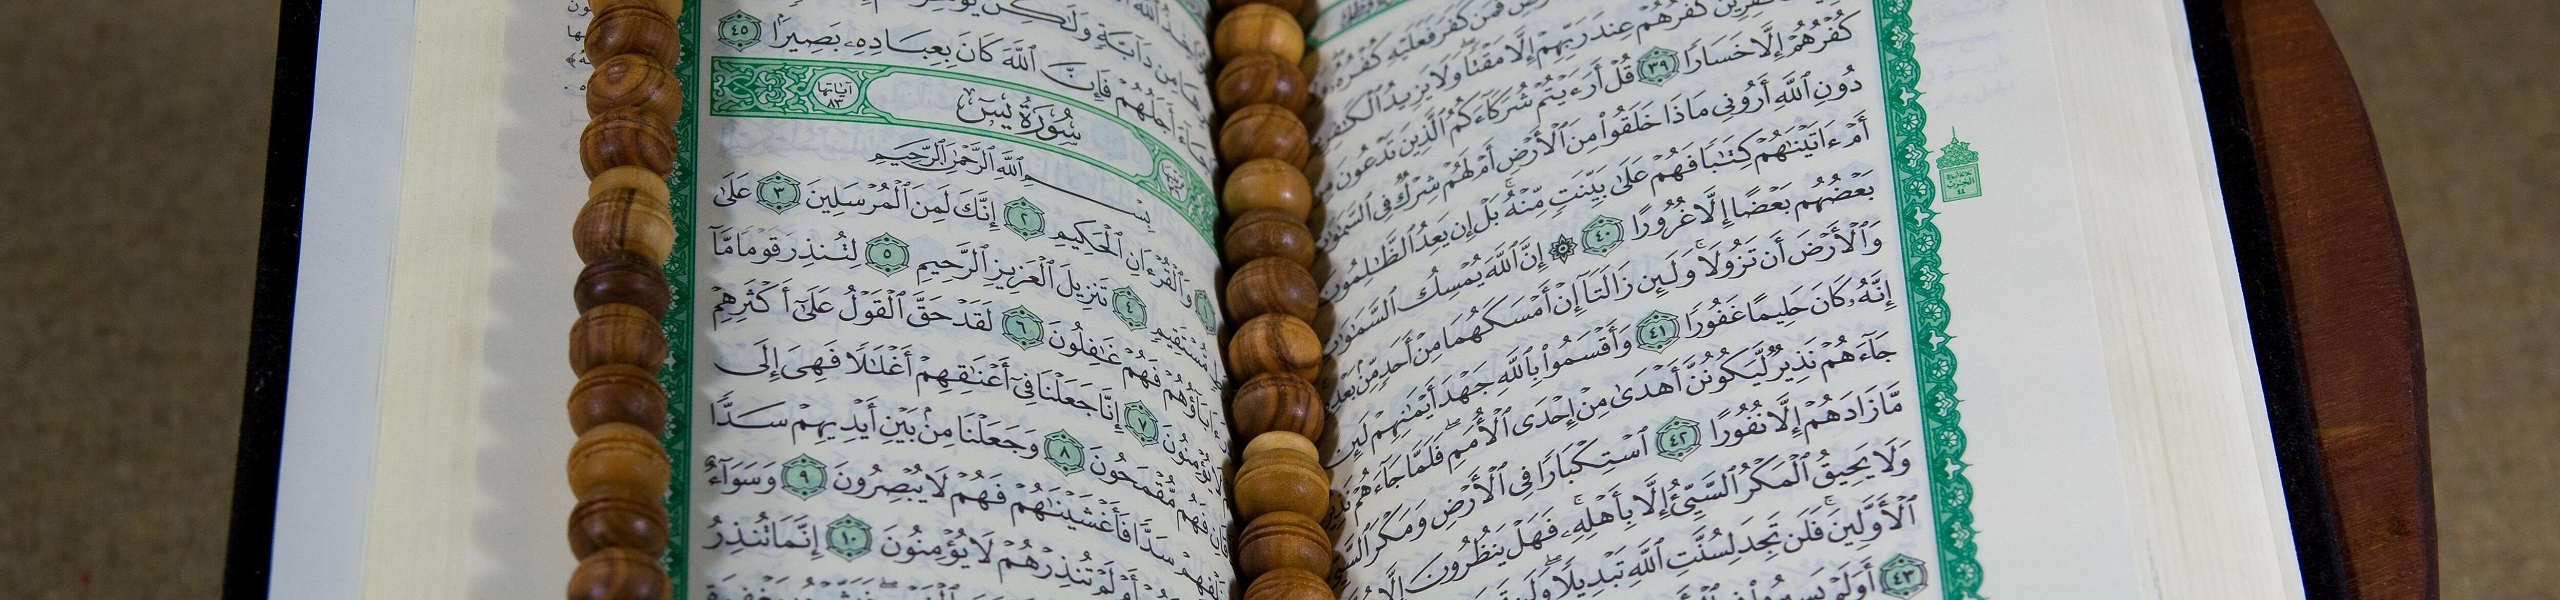 كُفْرُهُمْ إِلَّا خَسَارًا ٣٩ قُلْ أَرَءَيْتُمْ شُرَكَآءَكُمُ ٱلَّذِينَ تَدْعُونَ مِن
دُونِ ٱللَّهِ أَرُونِى مَاذَا خَلَقُوا۟ مِنَ ٱلْأَرْضِ أَمْ لَهُمْ شِرْكٌ فِى ٱلسَّمَٰوَٰتِ
أَمْ ءَاتَيْنَٰهُمْ كِتَٰبًا فَهُمْ عَلَىٰ بَيِّنَتٍ مِّنْهُ ۚ بَلْ إِن يَعِدُ ٱلظَّٰلِمُونَ
بَعْضُهُم بَعْضًا إِلَّا غُرُورًا ٤٠ ۞ إِنَّ ٱللَّهَ يُمْسِكُ ٱلسَّمَٰوَٰتِ
وَٱلْأَرْضَ أَن تَزُولَا ۚ وَلَئِن زَالَتَآ إِنْ أَمْسَكَهُمَا مِنْ أَحَدٍ مِّنۢ بَعْدِهِ
إِنَّهُۥ كَانَ حَلِيمًا غَفُورًا ٤١ وَأَقْسَمُوا۟ بِٱللَّهِ جَهْدَ أَيْمَٰنِهِمْ لَئِن
جَآءَهُمْ نَذِيرٌ لَّيَكُونُنَّ أَهْدَىٰ مِنْ إِحْدَى ٱلْأُمَمِ ۖ فَلَمَّا جَآءَهُمْ نَذِيرٌ
مَّا زَادَهُمْ إِلَّا نُفُورًا ٤٢ ٱسْتِكْبَارًا فِى ٱلْأَرْضِ وَمَكْرَ ٱلسَّيِّئِ
وَلَا يَحِيقُ ٱلْمَكْرُ ٱلسَّيِّئُ إِلَّا بِأَهْلِهِۦ ۚ فَهَلْ يَنظُرُونَ إِلَّا
ٱلْأَوَّلِينَ ۚ فَلَن تَجِدَ لِسُنَّتِ ٱللَّهِ تَبْدِيلًا ۖ وَلَن
٤٣ أَوَلَمْ
أَجَلُهُمْ فَإِنَّ ٱللَّهَ كَانَ بِعِبَادِهِۦ بَصِيرًۢا ٤٥
سُورَةُ يسٓ
آيَاتُهَا ٨٣
بِسْمِ ٱللَّهِ ٱلرَّحْمَٰنِ ٱلرَّحِيمِ
١ وَٱلْقُرْءَانِ ٱلْحَكِيمِ ٢ إِنَّكَ لَمِنَ ٱلْمُرْسَلِينَ ٣ عَلَىٰ
مُّسْتَقِيمٍ ٤ تَنزِيلَ ٱلْعَزِيزِ ٱلرَّحِيمِ ٥ لِتُنذِرَ قَوْمًا مَّآ
ءَابَآؤُهُمْ فَهُمْ غَٰفِلُونَ ٦ لَقَدْ حَقَّ ٱلْقَوْلُ عَلَىٰٓ أَكْثَرِهِمْ
يُؤْمِنُونَ ٧ إِنَّا جَعَلْنَا فِىٓ أَعْنَٰقِهِمْ أَغْلَٰلًا فَهِىَ إِلَى
فَهُم مُّقْمَحُونَ ٨ وَجَعَلْنَا مِنۢ بَيْنِ أَيْدِيهِمْ سَدًّا
خَلْفِهِمْ سَدًّا فَأَغْشَيْنَٰهُمْ فَهُمْ لَا يُبْصِرُونَ ٩ وَسَوَآءٌ
أَمْ لَمْ تُنذِرْهُمْ لَا يُؤْمِنُونَ ١٠ إِنَّمَا تُنذِرُ